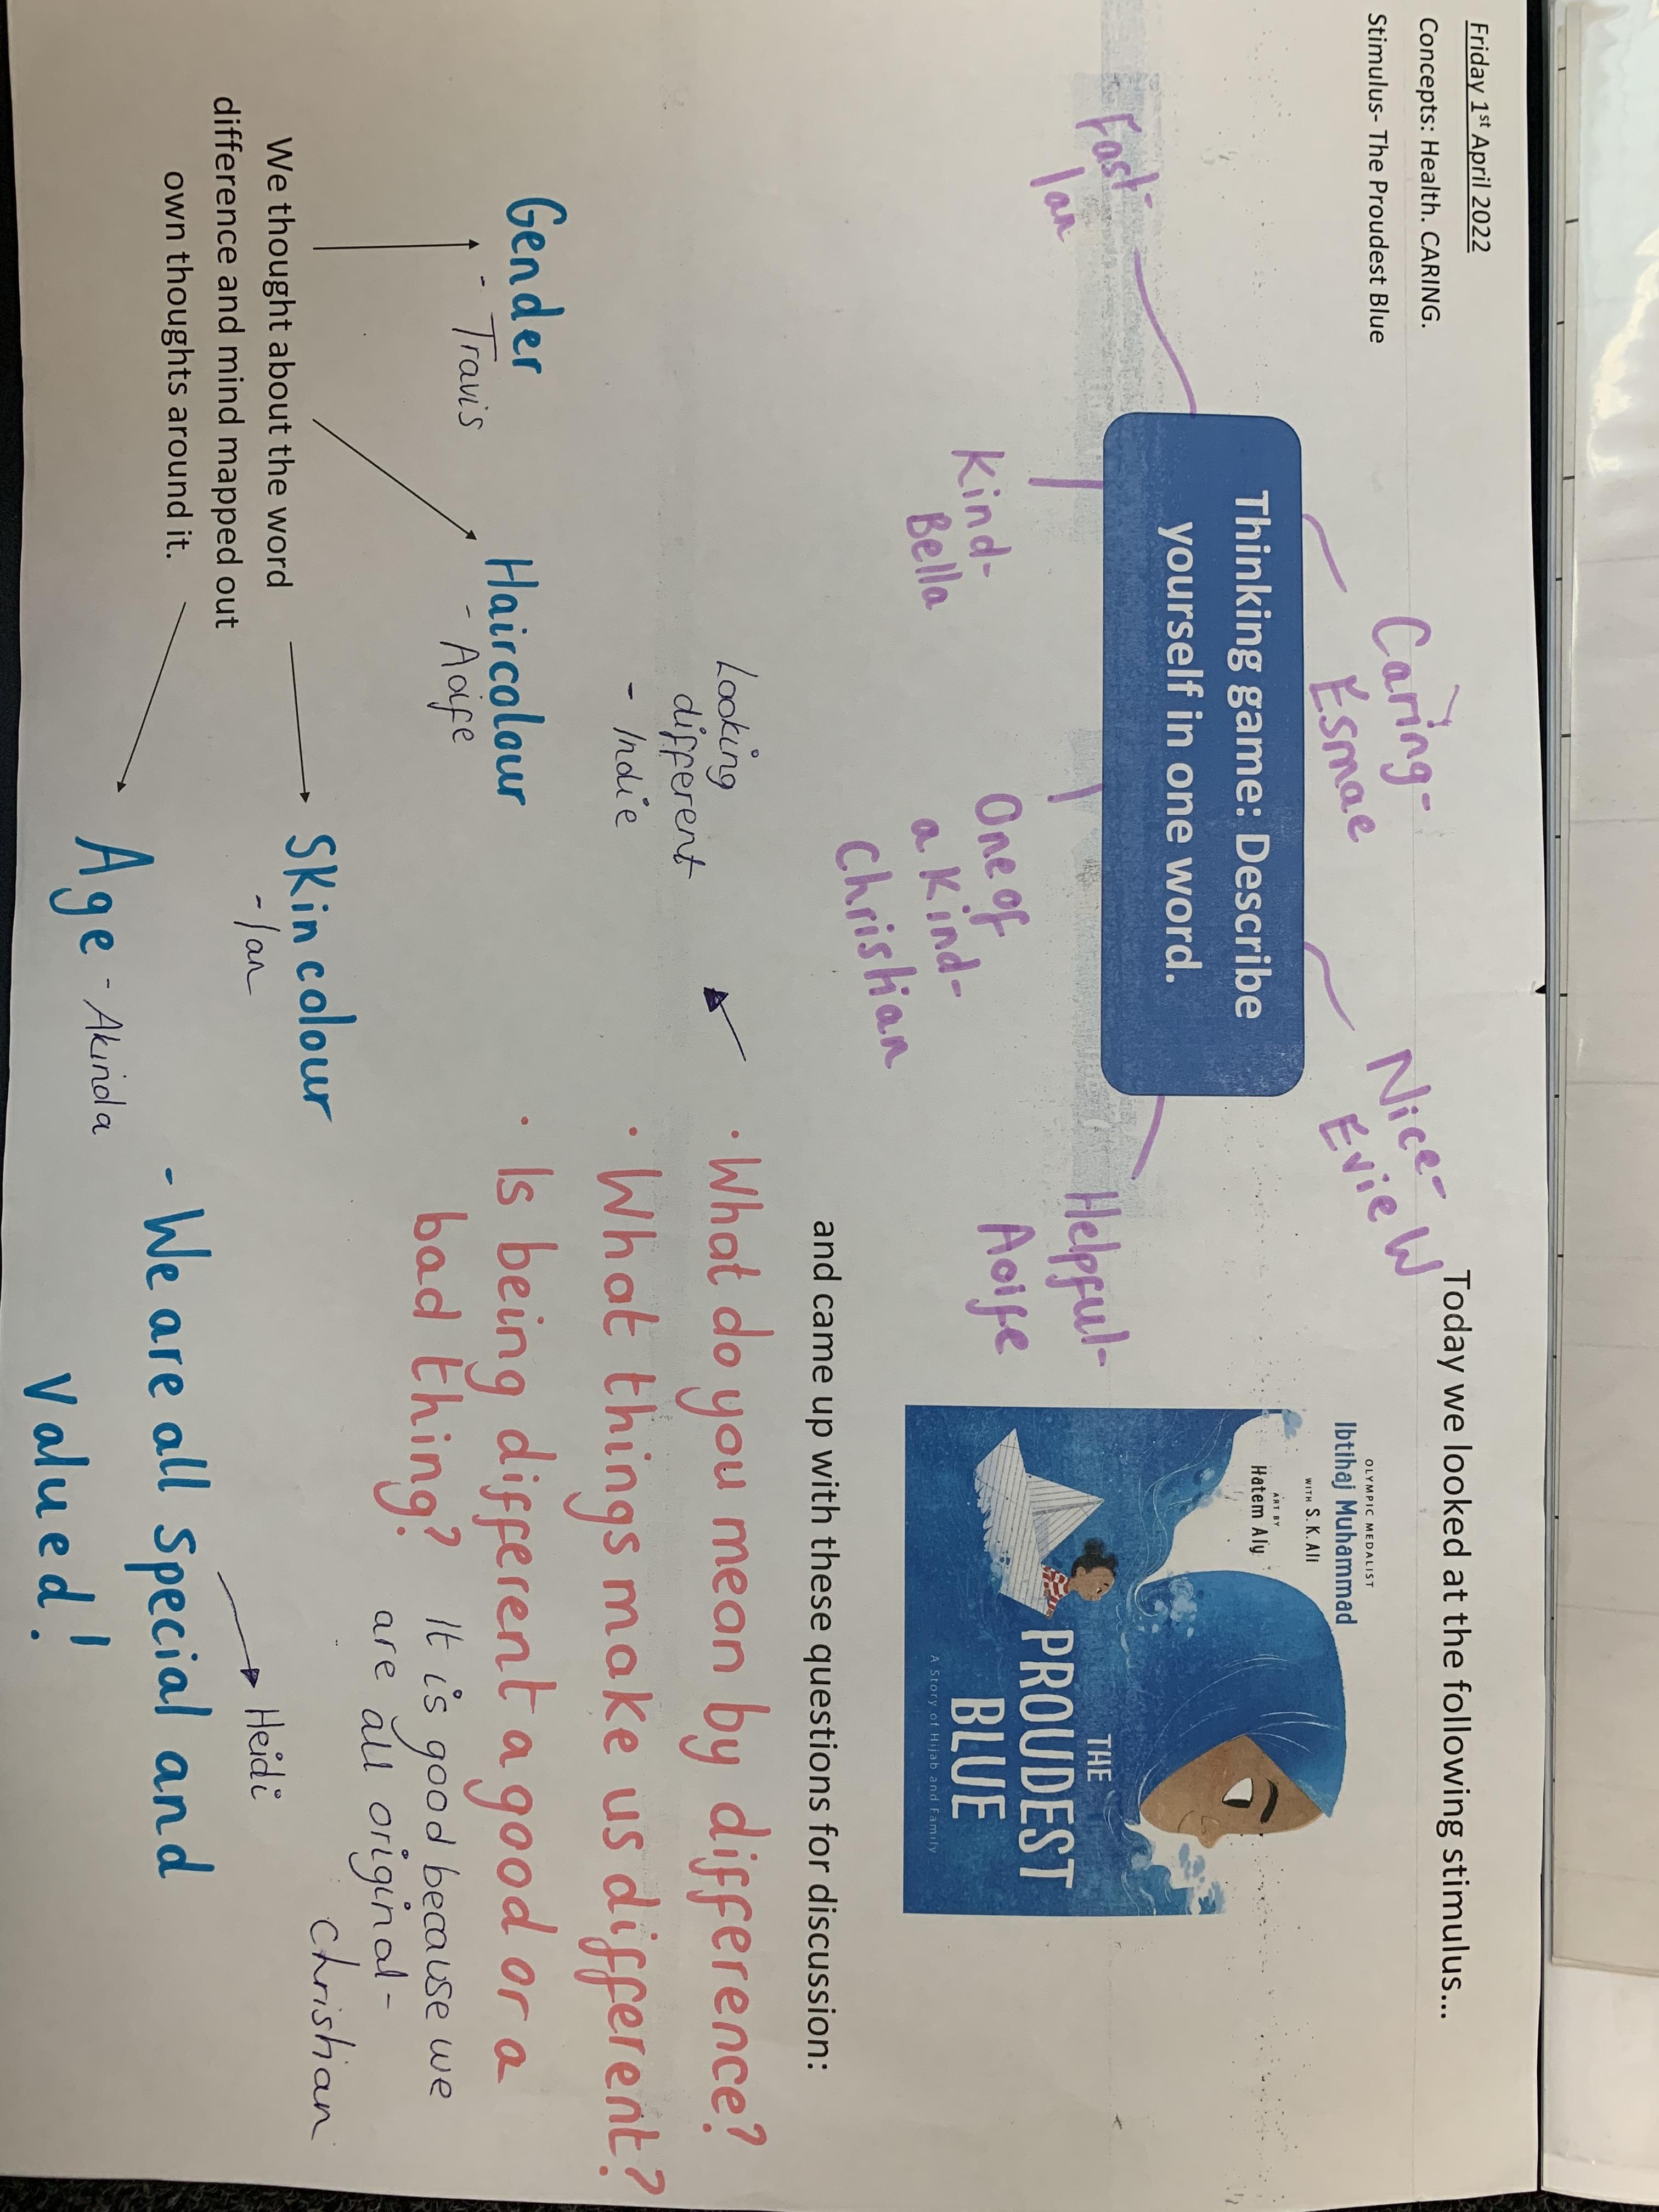 Friday 1st April 2022
Concepts: Health. CARING.
Stimulus- The Proudest Blue
Caring-
Esmae
Nice-
Evie W
Fast-
Ian
Thinking game: Describe
yourself in one word.
Kind-
Bella
One of
a kind-
Christian
Helpful-
Aoife
Today we looked at the following stimulus...
OLYMPIC MEDALIST
Ibtihaj Muhammad
WITH S. K. Ali
ART BY
Hatem Aly
THE
PROUDEST
BLUE
A Story of Hijab and Family
and came up with these questions for discussion:
Looking
different
- Indie
· What do you mean by difference?
· What things make us different?
· Is being different a good or a
bad thing?
It is good because we
are all original-
Christian
Gender
- Travis
Haircolour
- Aoife
We thought about the word
difference and mind mapped out
own thoughts around it.
Skin colour
- Ian
Age - Akinda
- We are all special and
valued!
Heidi